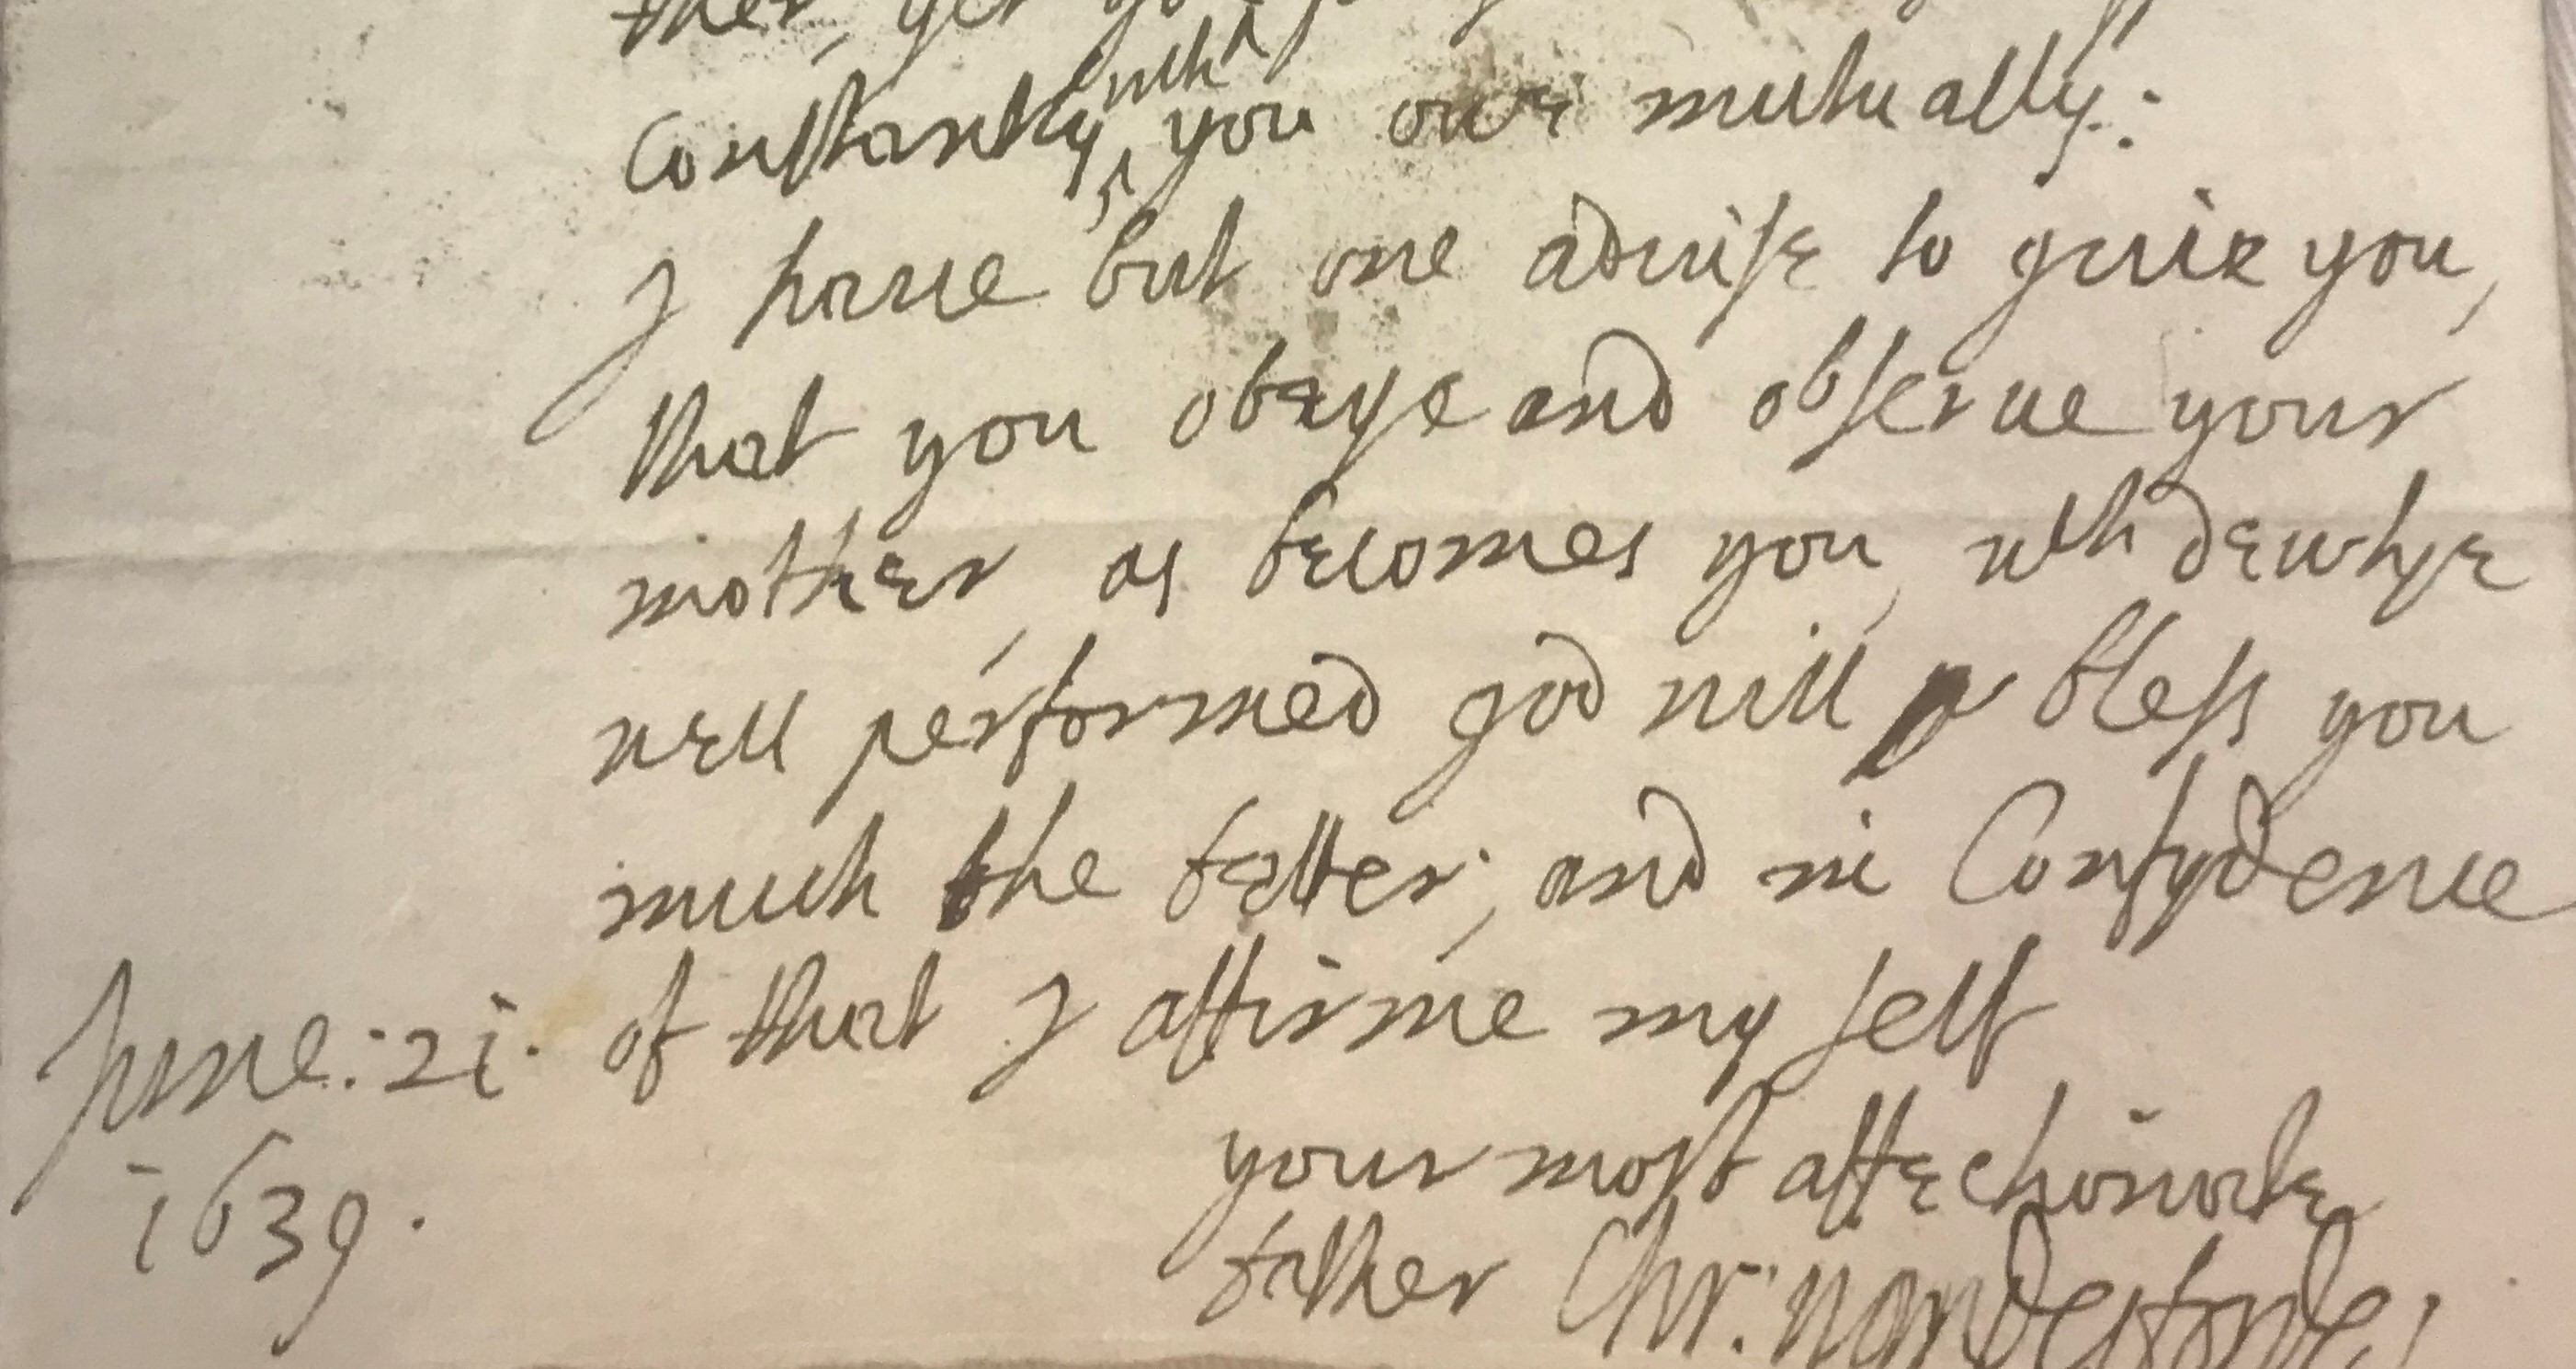 ther, yet yo
Constantly wch you owe mutually:
I haue but one aduise to giue you,
that you obaye and obserue your
mother, as becomes you, wch dewtye
well performed god will bless you
much the better; and in Confydence
June: 21. of that I affirme my self
1639. your most affectionate
father Chr: Wandesforde